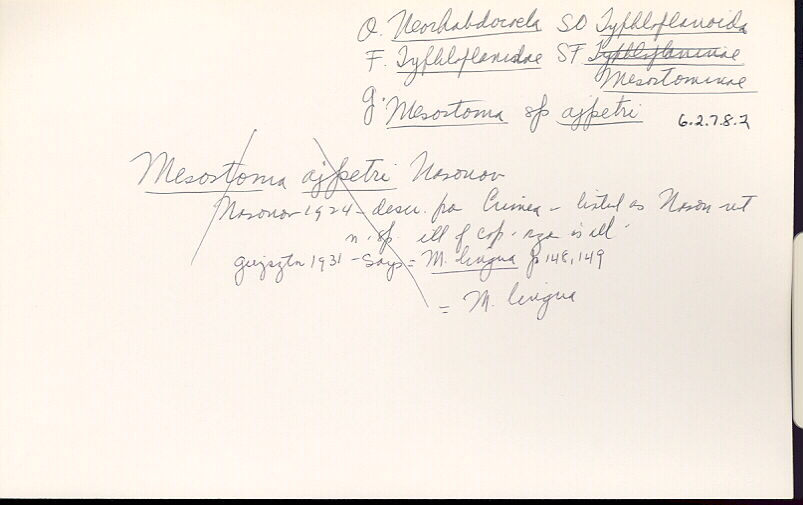 O. Neorhabdocoela SO Typhloplanoida
F. Typhloplanidae SF Typhloplaninae
Mesostominae
g. Mesostoma sp ajpetri 6.2.7.8.2
Mesostoma ajpetri Nasonov
Nasonov 1924 - descr. fra Crimea - listed as Nason
n. sp. ill of cop. is ill.
1931 - Says = M. lingua p 148, 149
= M. lingua